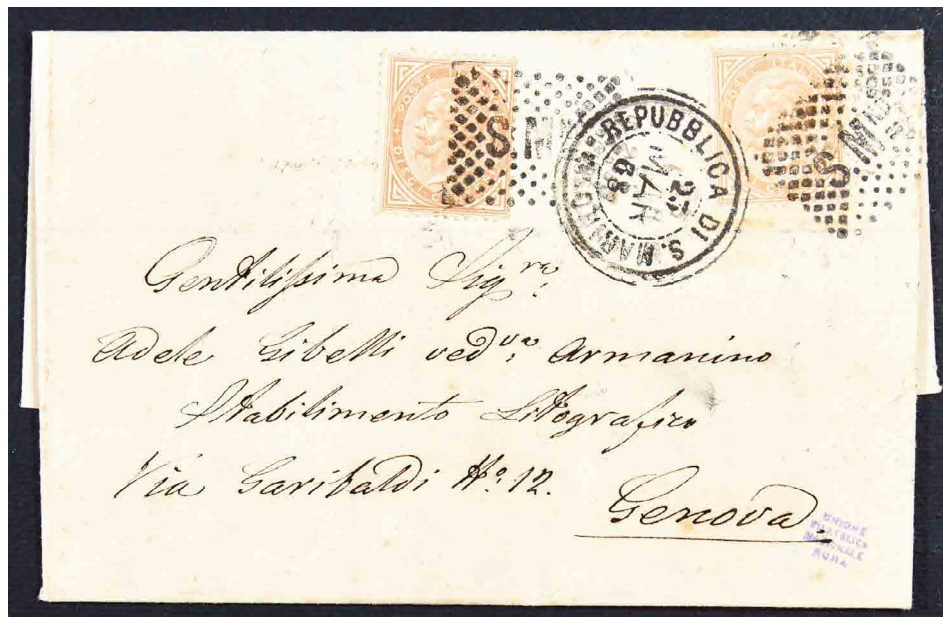 POSTE
DIECI
S.M
REPUBBLICA DI S. MARINO
23
MAR
68
POSTE ITAL
S
Gentilissima Sigra:
Adele Gibelli vedva: Armanino
Stabilimento Litografico
Via Garibaldi No: 12.
Genova
UNIONE
FILATELICA
NAZIONALE
ROMA